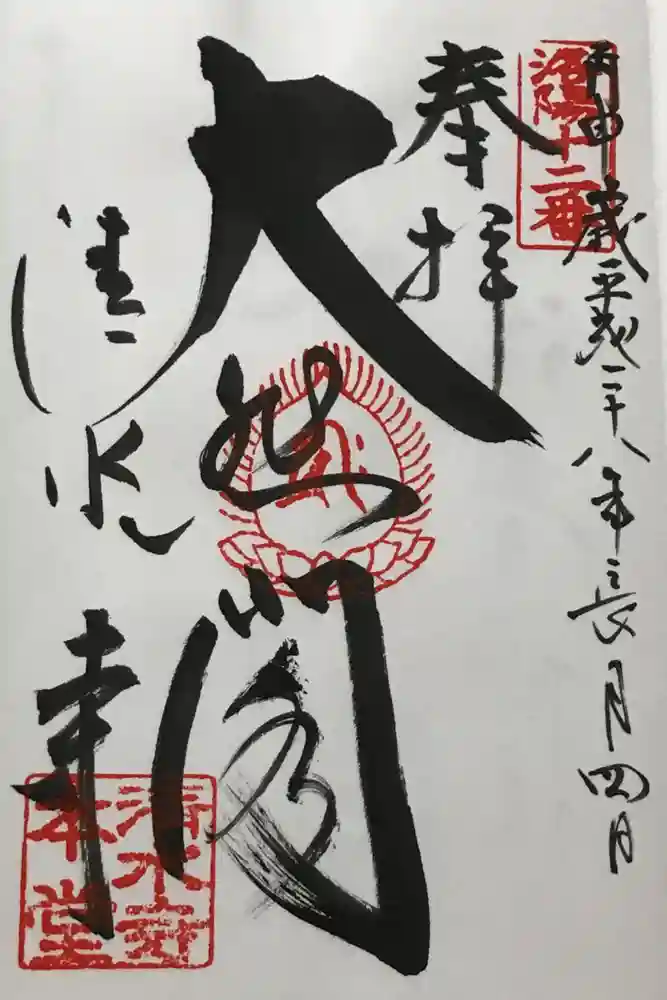 丙申歳平成二十八年長月四日
洛陽十二番
奉拝
大悲閣
清水寺
清水寺
本堂